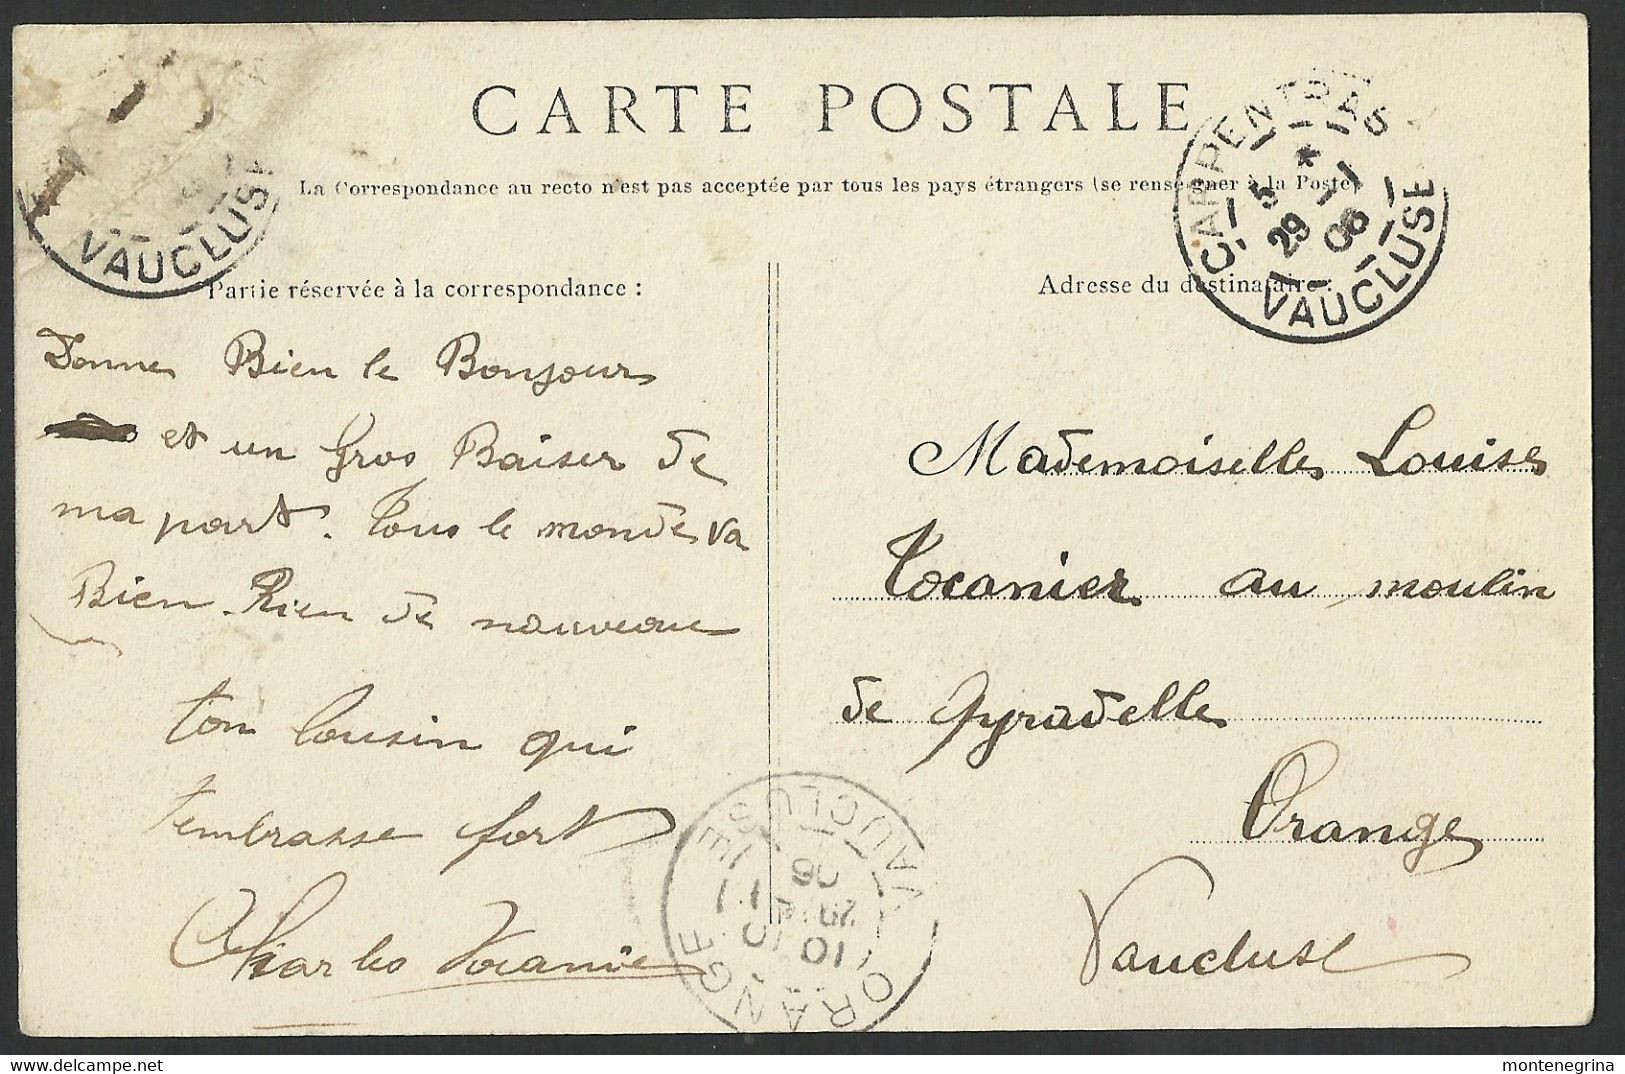 CARTE POSTALE
La Correspondance au recto n'est pas acceptée par tous les pays étrangers (se renseigner à la Poste)
VAUCLUSE
CARPENTRAS
5
29 -1
06
VAUCLUSE
Partie réservée à la correspondance :
Donne Bien le Bonjour
et un Gros Baiser de
ma part. Tous le monde va
Bien. Rien de nouveau
ton Cousin qui
t'embrasse fort
Charles Tocanier
Adresse du destinataire :
Mademoiselle Louise
Tocanier au moulin
de Gyradelle
Orange
Vaucluse
ORANGE
VAUCLUSE
06
montenegrina